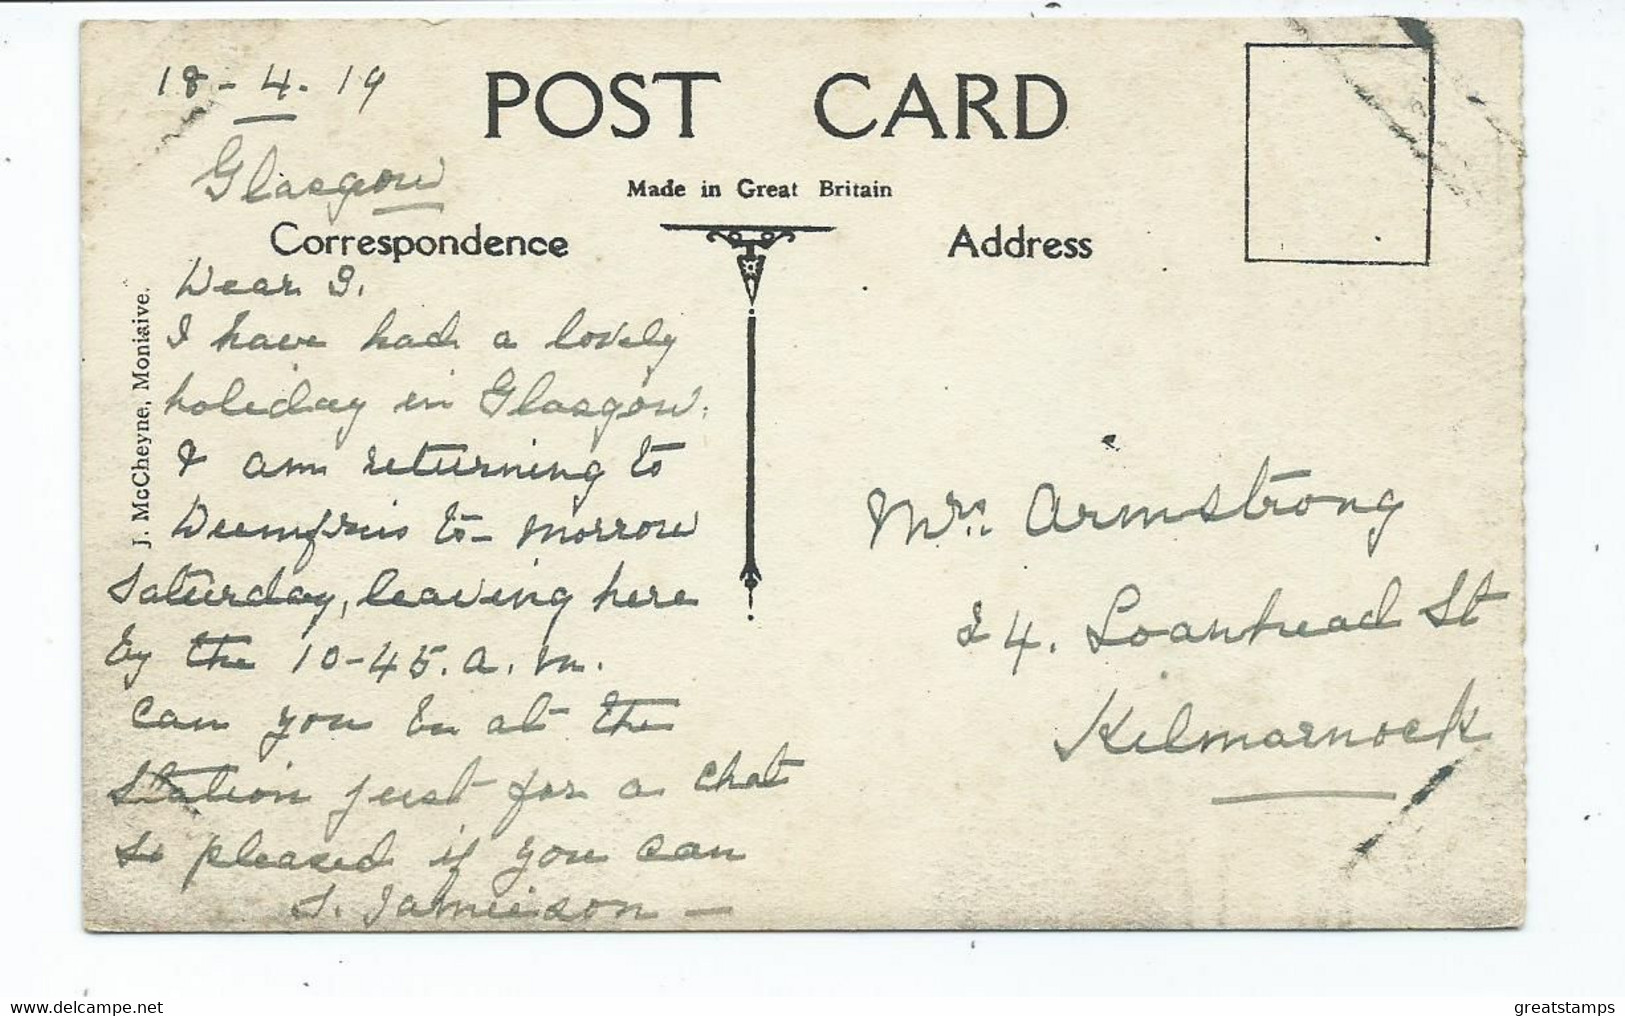 18-4.19
POST CARD
Glasgow
Made in Great Britain
Correspondence
Address
J. McCheyne, Moniaive.
Dear I.
I have had a lovely
holiday in Glasgow.
I am returning to
Dumfries to-morrow
Saturday, leaving here
by the 10-45.a.m.
Can you be at the
Station just for a chat
So pleased if you can
J. Jamieson —
Mrs. Armstrong
24. Loanhead St
Kilmarnock
www.delcampe.net
greatstamps